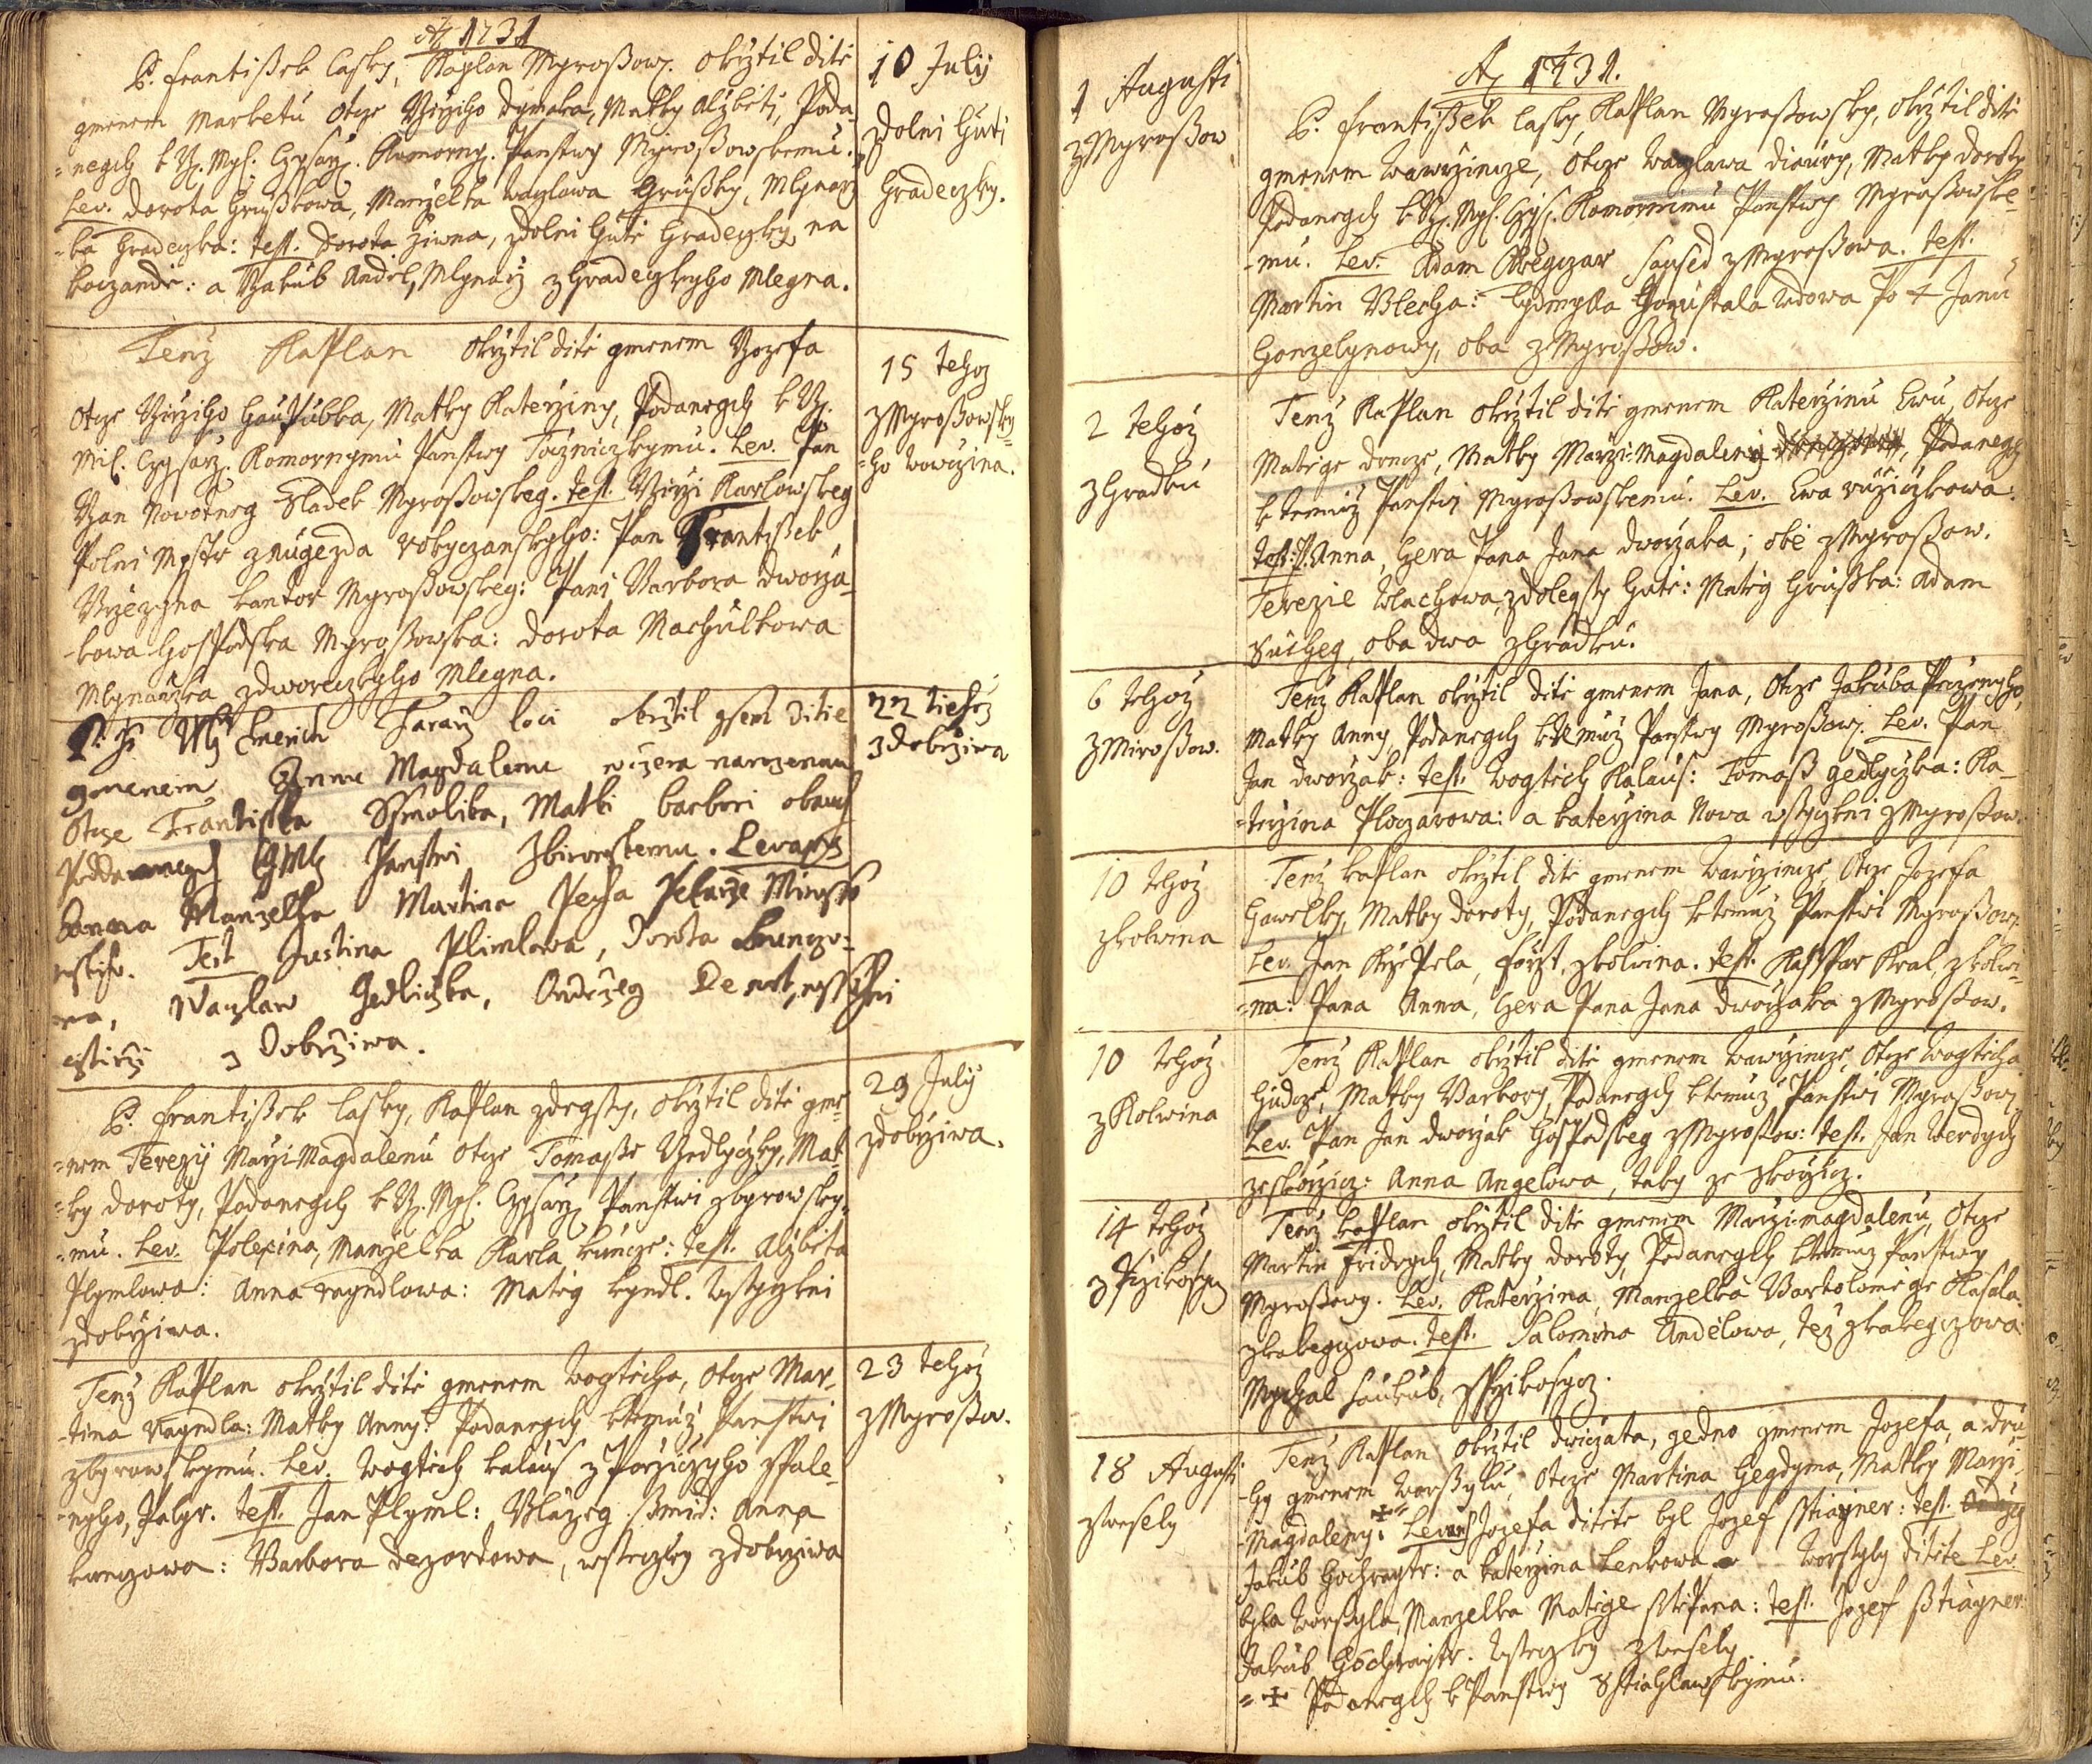 Aº 1731
P. Frantißek Lasky, Kaplan Myroßow. okrztil ditě
gmenem Marketu otcze Girziho Dymaka, Matky Alzběti, Poda-
=negch k G. Mył. Czysarz. Komorny. Panstwy Myroßowskemu.
Lev. Dorota Grußkowa, Manzelka Waczlawa Grußky, Mlynarz
=ka Gradeczka: test. Dorota Ziwna, zdolni Huti Gradeczky na
: a Jakub Anděl, Mlynarz z Gradeczkyho Mlegna.
10 July
z Dolni Huti
Gradeczky.
Tenz Kaplan okrztil ditě gmenem Jozefa
otcze Girziho Hauspubka, Matky Katerziny, Podanegch k G.
Mil. Czysarz. Komornymu Panstwy Toczniczkymu. Lev. Pan
Jan Nowotneg Sladek Myroßowskeg. test. Girzi Karlowskeg
Polni Mystr z augezda Rokyczanskyho: Pan Frantißek
Brzezyna kantor Myroßowskeg: Pani Barbora Dworza-
-kowa Hospodska Myroßowska: Dorota Machulkowa
Mlynarzka z dworeczkyho Mlegna.
15 tehoz
z Myroßowsky=
=ho Wowczina.
Emerich Fararz loci okrztil gsem Ditie
gmenem Annu Magdalenu wczera narozenau
Otcze Frantißka Smolika, Matki barbori obauch
Poddanegch Panstwi Zbirowskemu. Levans
Anna Manzelka Martina Pecha Pekarze Miross
wskiho. Test Justina Plimlowa, Dorota Kunczo=
wa, Waczlaw Gedliczka, Ondrzeg
z Dobrziwa.
22 tiehoz
z Dobrziwa
P. Frantißek Lasky, Kaplan zdegssy, okrztil ditě gme=
=nem Terezy Marzi-Magdalenu otcze Tomasse Gedlyczky, Mat
=ky Doroty, Podanegch k G. Myl. Czysarz. Panstwi zbyrowsky=
=mu. Lev. Polexina, Manzelka Karla kuncze: test. Alzběta
Plymlowa: Anna Ragndlowa: Matěg kyndl. Wssyczkni
z Dobrziwa.
29 July
z Dobrziwa.
Tenz Kaplan okrztil ditě gmenem Wogtěcha, otcze Mar-
-tina Ragndla: Matky Anny: Podanegch ktemuz Panstwi
zbyrowskymu. Lev. Wogtěch kalaus z Porziczyho spale-
-nyho, Palyr. test. Jan Plyml: Blazeg ßmid: Anna
kunczowa: Barbora Dezortowa, wsseczky z dobrziwa
23 tehoz
z Myroßow.
Aº 1731.
1 Augusti
z Myroßow
P. Frantißek Lasky, Kaplan Myroßowsky, okrztil ditě
gmenem Wawrzincze, otcze Waczlawa Diaury, Matky Doroty
Podanegch k G. Myl. Czys. Komornimu Panstwy Myroßowske-
-mu. Lev. Adam Kregczar Saused z Myroßowa. test.
Martin Blecha: Lydmyla Pozustala Wdowa Po + Janu
Gonzelynowy, oba z Myroßow.
2 tehoz
z Hradku
Tenz Kaplan okrztil ditě gmenem Katerzinu Ewu, otcze
Matěge Doncze, Matky Marzi-Magdaleny, Podanegch
ktemuz Panstwi Myroßowskemu. Lev. Ewa Ruziczkowa:
test: P. Anna, Cera Pana Jana Dworzaka; obě z Myroßow.
Terezie Wlachowa, z dolegssy Huti: Matěg Grußka: Adam
Sucheg, oba dwa z Hradku.
6 tehoz
z Miroßow.
Tenz Kaplan okrztil ditě gmenem Jana, otcze Jakuba Peczenyho,
Matky Anny Podanegch ktemuz Panstwy Myroßow. Lev. Pan
Jan Dworzak: test. Wogtěch Kalaus: Tomaß Gedlyczka: Ka-
-terzina Ploczarowa: a katerzina Nowa wssyczkni z Myroßow.
10 tehoz
z kolwina
Tenz kaplan okrztil ditě gmenem Wawrzincze, otcze Jozefa
Hawelky, Matky Doroty, Podanegch ktemuz Panstwi Myroßow.
Lev. Jan Krzepela, Först, z kolwina. test. Kasspar Kral, z kolwi-
=na: Pana Anna, Cera Pana Jana Dworzaka z Myroßow.
10 tehoz
z Kolwina
Tenz Kaplan okrztil ditě gmenem Wawrzincze, otcze Wogtěcha
Hudcze, Matky Barbory, Podanegch ktemuz Panstwi Myroßow.
Lev. Pan Jan Dworzak Hospodskeg z Myroßow: test. Jan Werdych
ze skorzicz: Anna Angelowa, taky ze skorzicz.
14 tehoz
z Przikosycz
Tenz kaplan okrztil ditě gmenem Marzi-magdalenu, otcze
Martin Fridrych, Matky Doroty, Podanegch ktemuz Panstwy
Myroßowy. Lev. Katerzina, Manzelka Bartoloměge Kasala
z kakegczowa. test. Salomina Andělowa, tez z kakegczowa
Mychal Kaukub, z Przikosycz.
18 Augusti
z Wesely
Tenz Kaplan okrztil dwiczata, gedno gmenem Jozefa, a dru
-hy gmenem Worßylu, otcze Martina Hegdyma, Matky Marzi
-Magdaleny. + Levans Jozefa ditěte byl Jozef ssti
agner: test.
Jakub Hochmaystr: a katerzina Lenkowa. Worssyly ditěte Lev.
byla Worssyla, Manzelka Matěge sstěpana: test. Jozef ßtiagner
Jakub Hochmaystr. Wsseczky z Wesely.
=+ Podanegch k Panstwy Sstiahlawskymu.